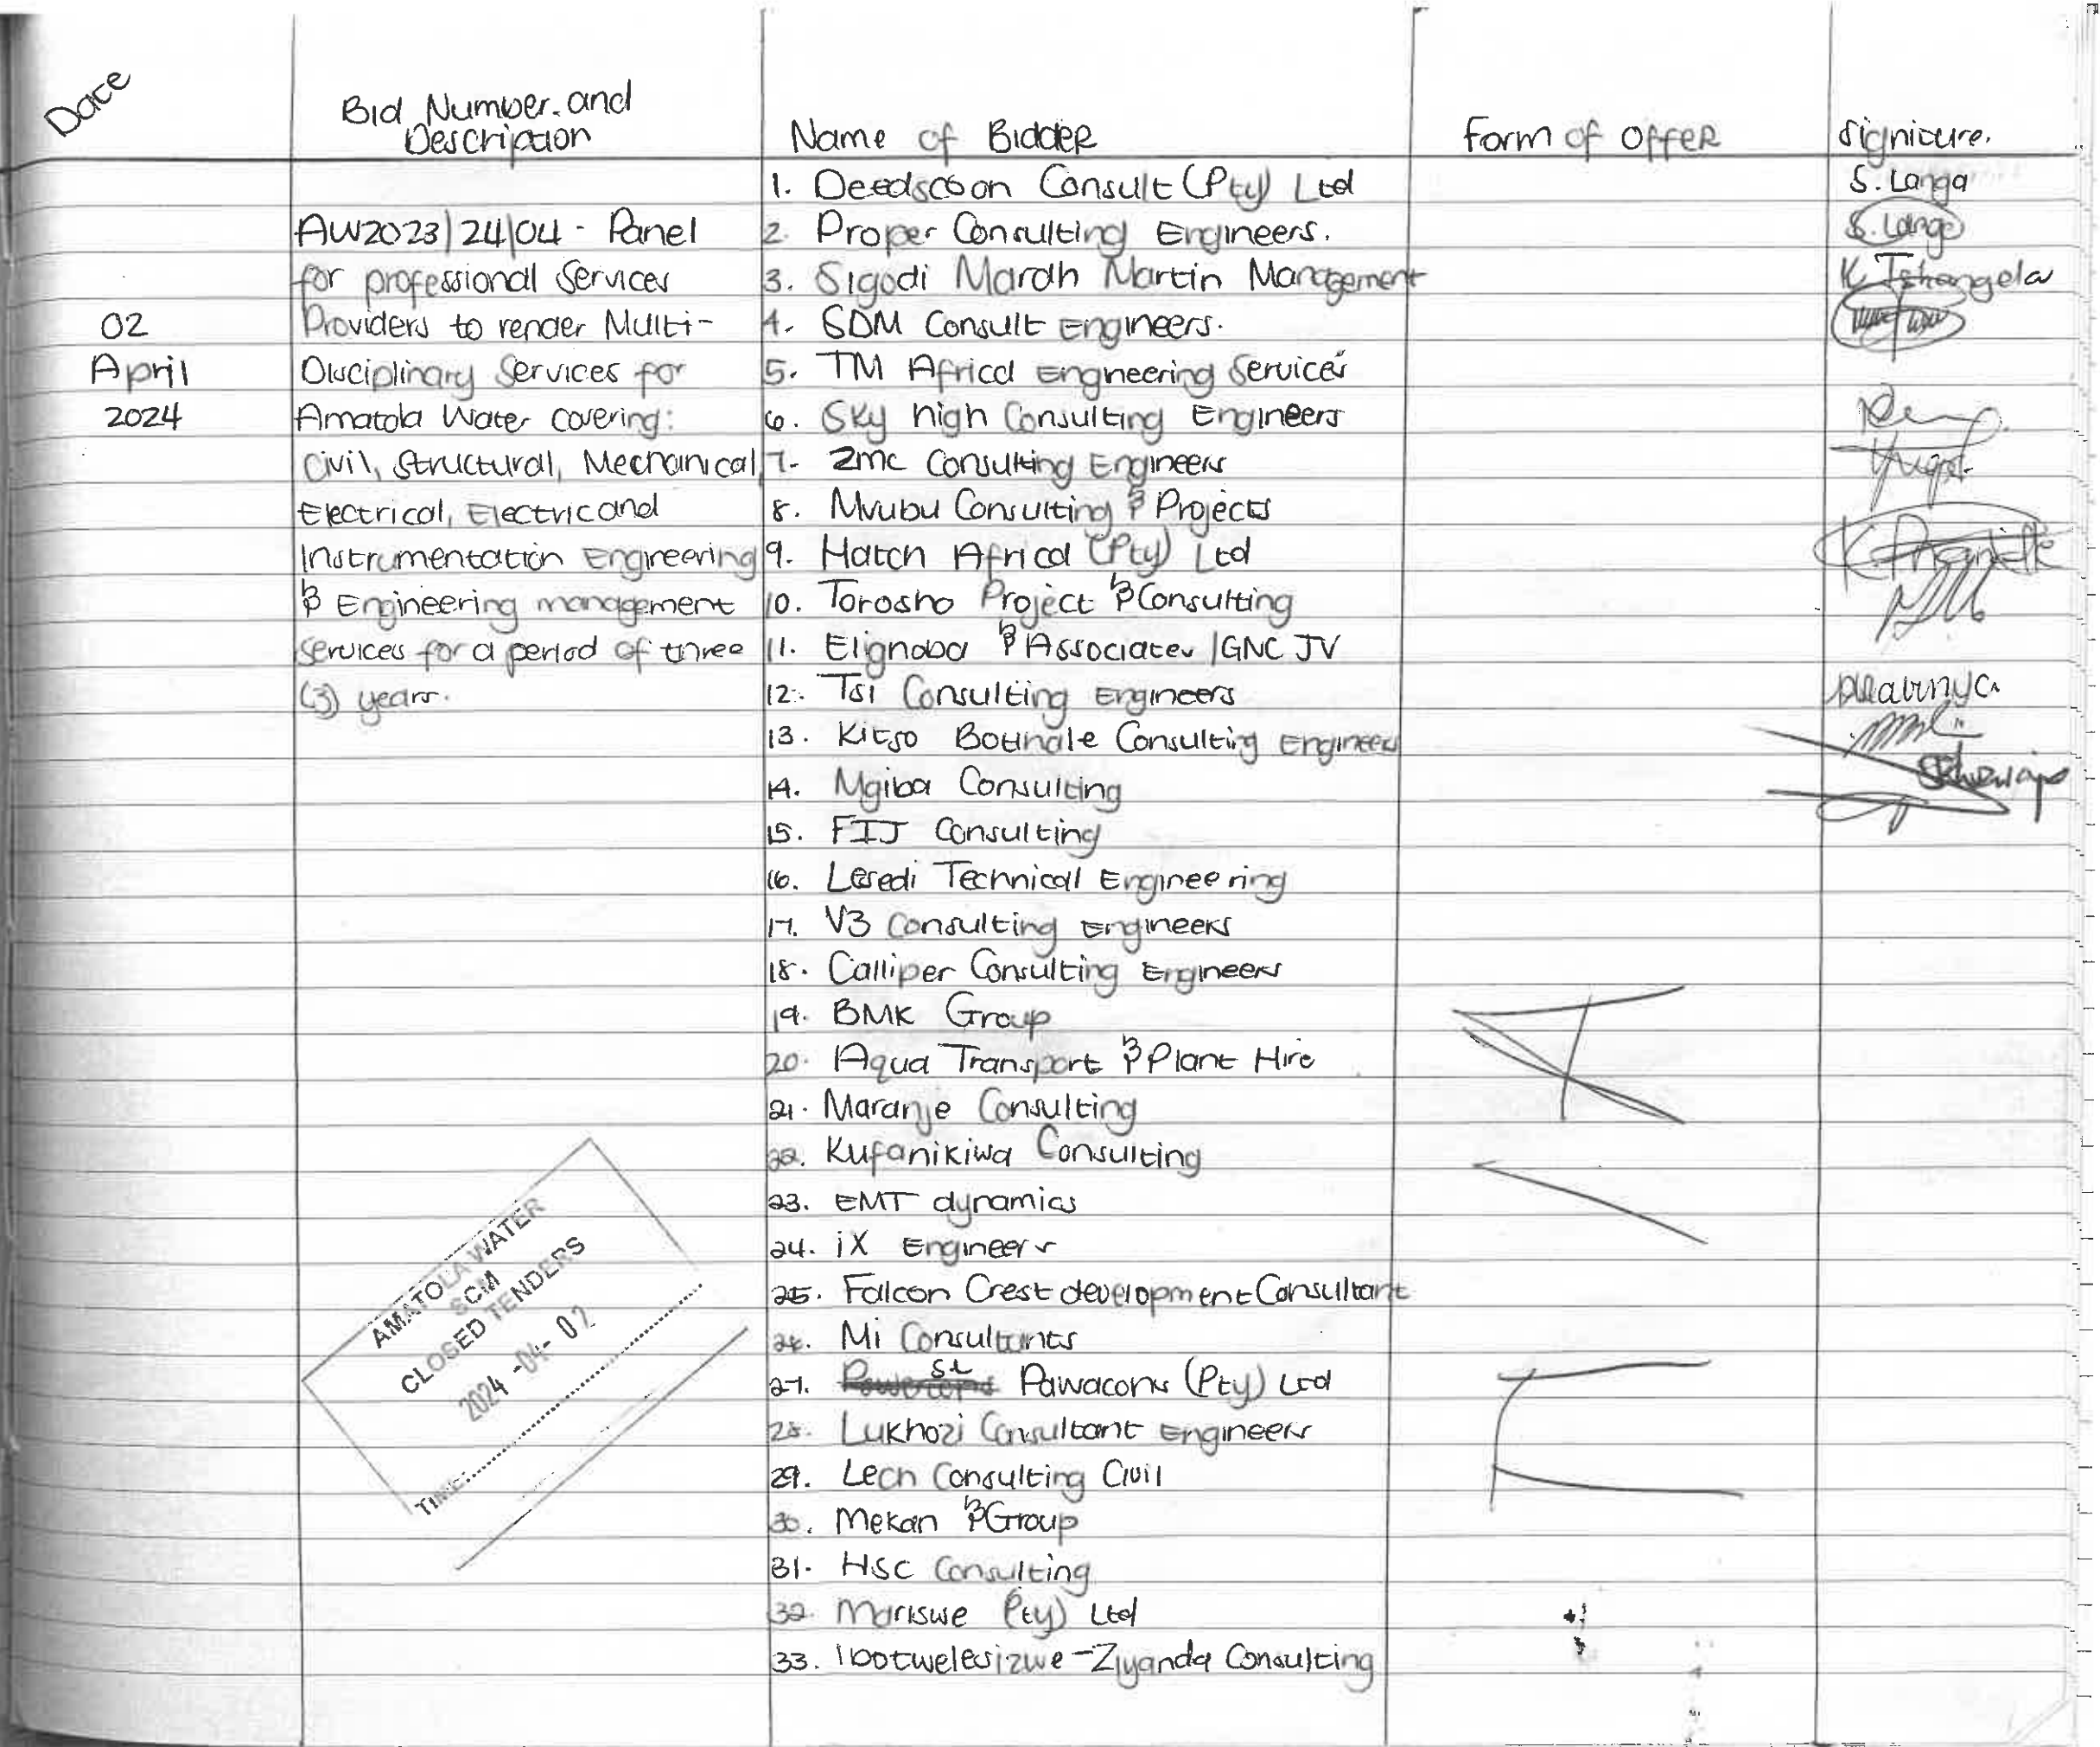 Date
Bid Number and
Description
Name of Bidder
Form of Offer
Signiture.
02
April
2024
AW2023/24/04 - Panel
for professional Services
Providers to render Multi-
Disciplinary Services for
Amatola Water covering:
Civil, Structural, Mechanical,
Electrical, Electric and
Instrumentation Engineering
& Engineering management
Services for a period of three
(3) years.
1. Consult (Pty) Ltd
2. Proper Consulting Engineers.
3. Sigodi Marah Martin Management
4. SDM Consult Engineers.
5. TM Africa Engineering Services
6. Sky high Consulting Engineers
7. ZMC Consulting Engineers
8. Mvubu Consulting & Projects
9. Hatch Africa (Pty) Ltd
10. Torosho Project & Consulting
11. & Associates /GNC JV
12. Tsi Consulting Engineers
13. Kitso Botlhale Consulting Engineers
14. Mgiba Consulting
15. FIJ Consulting
16. Leredi Technical Engineering
17. V3 Consulting Engineers
18. Calliper Consulting Engineers
19. BMK Group
20. Aqua Transport & Plant Hire
21. Maranje Consulting
22. Kufanikiwa Consulting
23. EMT dynamics
24. iX Engineers
25. Falcon Crest development Consultant
26. Mi Consultants
27. Pawacons (Pty) Ltd
28. Lukhozi Consultant Engineers
29. Lech Consulting Civil
30. Mekan & Group
31. HSC Consulting
32. Mariswe (Pty) Ltd
33. Ibotwelesizwe - Ziyanda Consulting
S. Langa
S. Langa
K Tshangela
AMATOLA WATER
SCM
CLOSED TENDERS
2024 -04- 02
TIME: